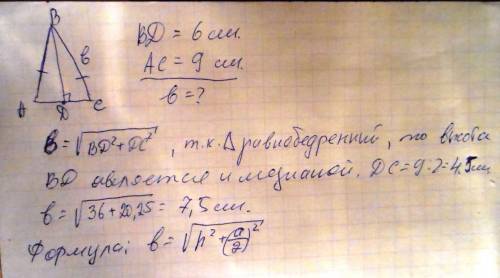 B
в
A
D
C
BD = 6 см.
AC = 9 см.
в = ?
в = √(BD² + DC²), т.к. Δ равнобедренний, то высота
BD является и медианой. DC = 9:2 = 4,5 см
в = √(36 + 20,25) = 7,5 см.
Формула: в = √(h² + (a/2)²)